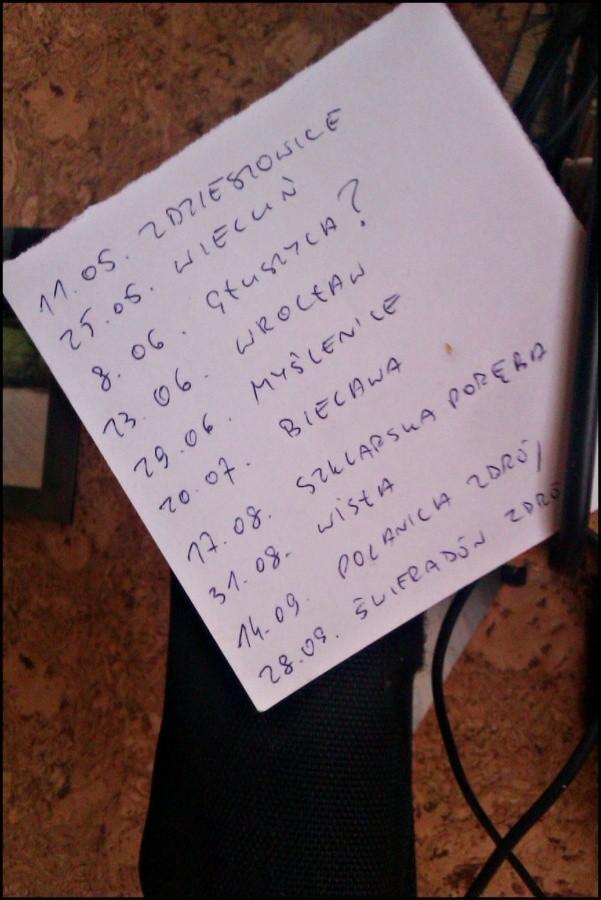 11.05. ZDZIESZOWICE
25.05. WIELUŃ
8.06. GŁUSZYCA?
23.06. WROCŁAW
29.06. MYŚLENICE
20.07. BIELAWA
17.08. SZKLARSKA PORĘBA
31.08. WISŁA
14.09. POLANICA ZDRÓJ
28.09. ŚWIERADÓW ZDRÓ